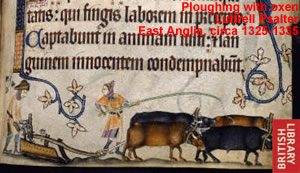 Ploughing with oxen
Luttrell Psalter
East Anglia, circa 1325-1335
tatis: qui fingis laborem in
Captabunt in animam iusti:
guinem innocentem condempnabūt.
LIBRARY
BRITISH